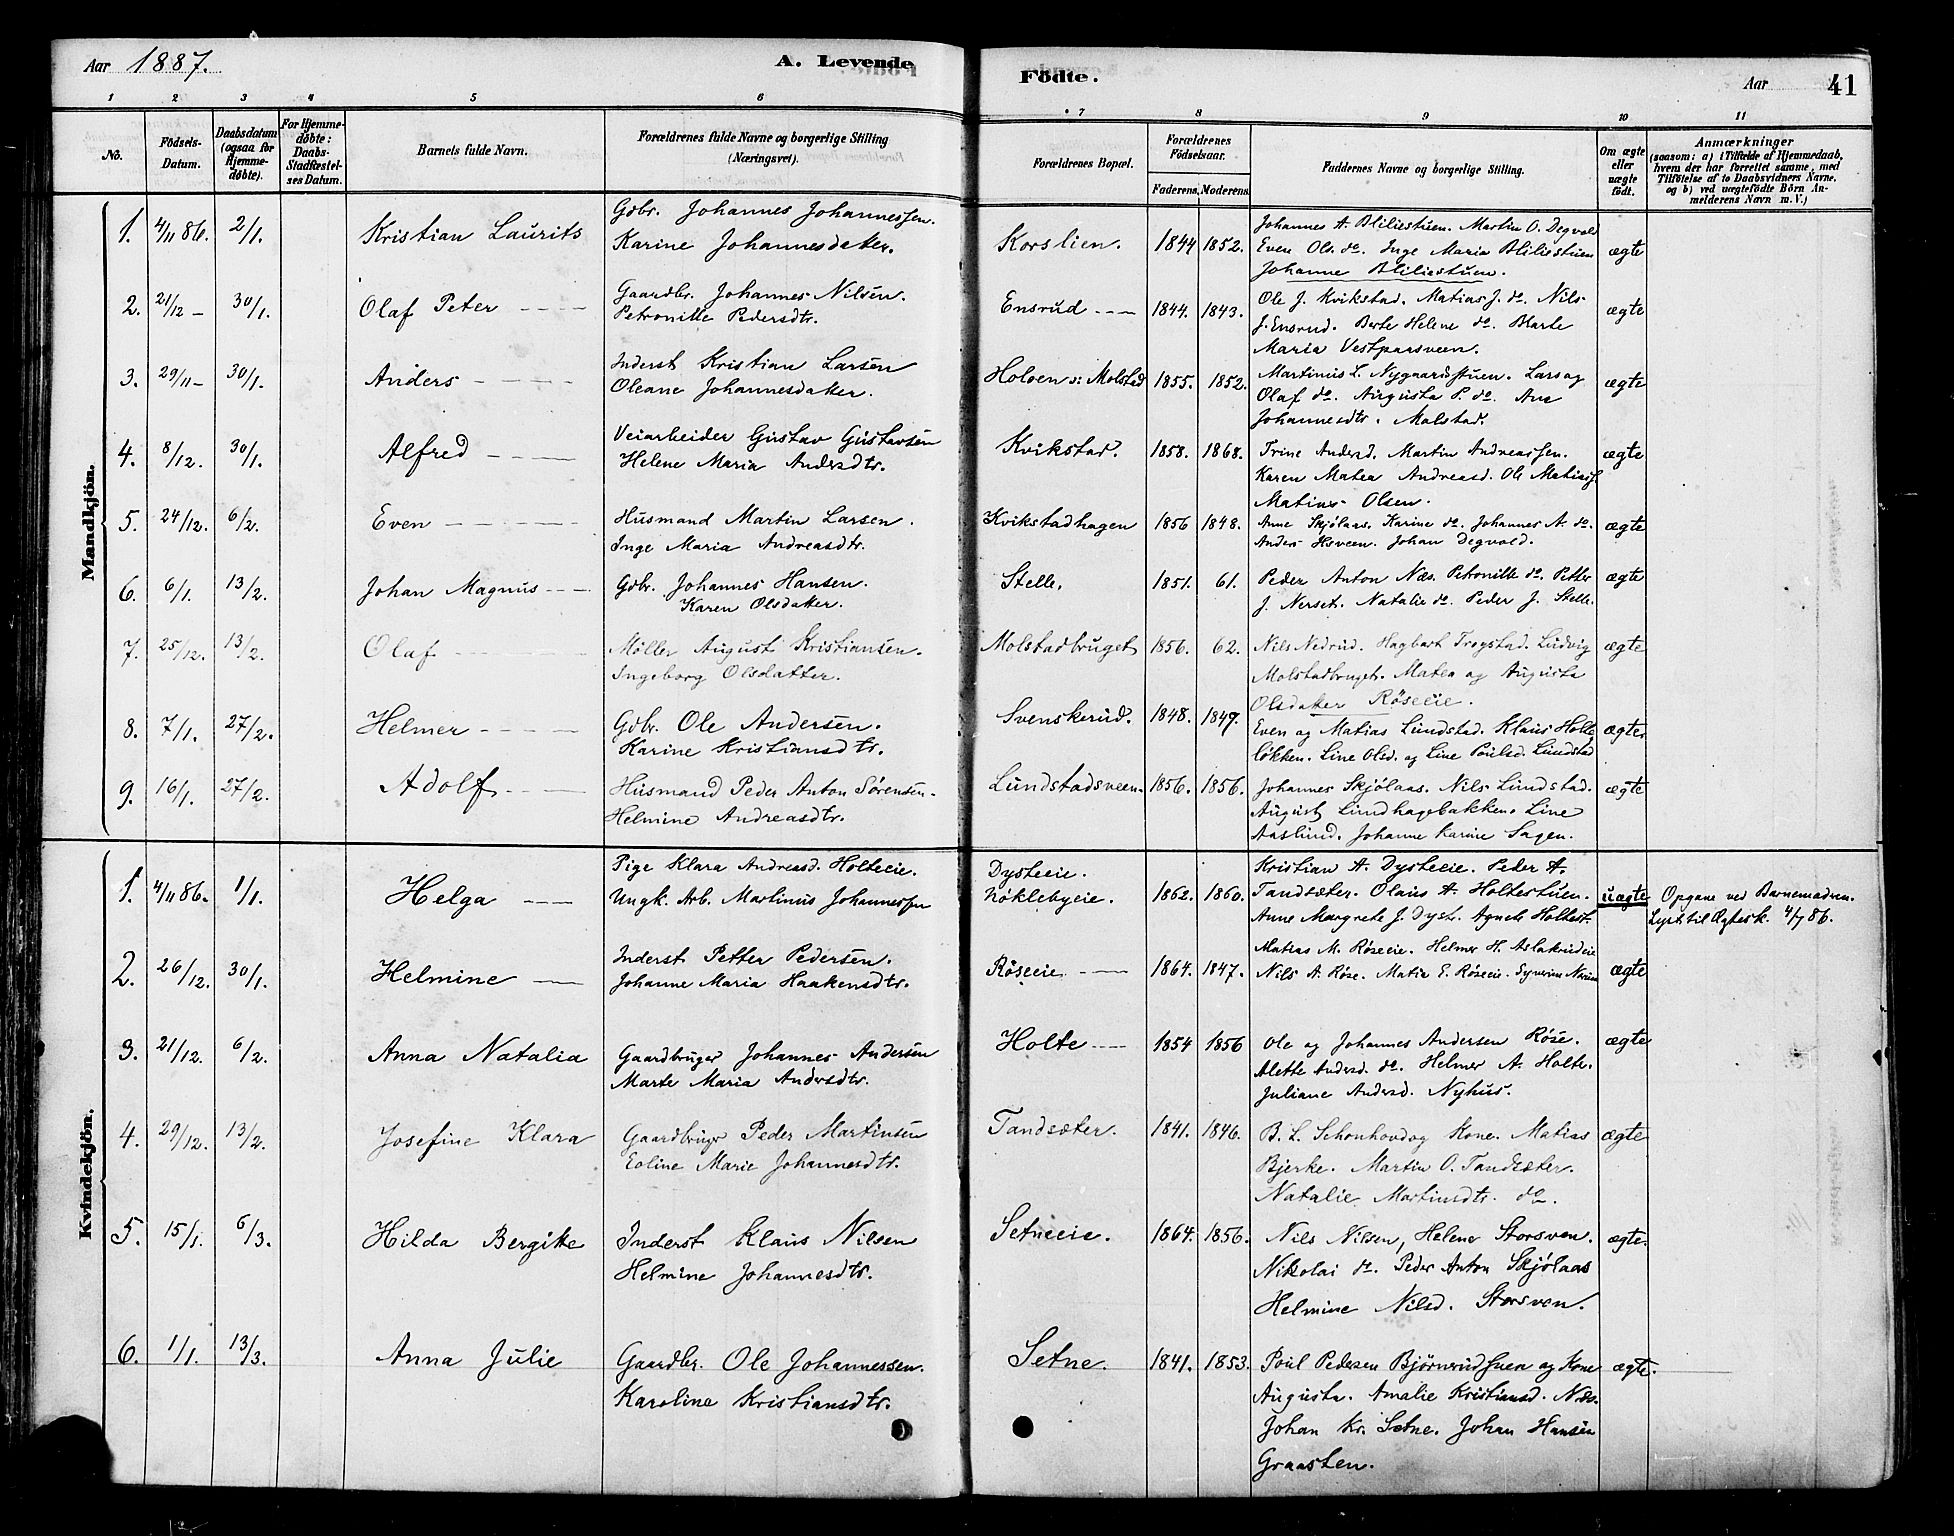 Aar 1887. A. Levende Födte. Aar 41
1 2 3 4 5 6 7 8 9 10 11
No. Födsels-Datum. Daabsdatum (ogsaa for Hjemme-døbte). For Hjemme-døbte: Daabs-Stadfæstel-ses Datum. Barnets fulde Navn. Forældrenes fulde Navne og borgerlige Stilling (Næringsvei). Forældrenes Bopæl. Forældrenes Födselsaar. Faderens. Moderens. Faddernes Navne og borgerlige Stilling. Om ægte eller uægte födt. Anmærkninger (saasom: a) i Tilfælde af Hjemmedaab, hvem der har forrettet samme, med Tilföielse af to Daabsvidners Navne, og b) ved uægtefödte Börn An-melderens Navn m. V.)
Mandkjön.
1. 4/11 86. 2/1. Kristian Laurits Gdbr. Johannes Johannessen. Korslien. 1844 1852. Johannes A. Bliliestuen. Martin O. Degvold ægte
Karine Johannesdatter. Even Ols. do. Inge Maria Bliliestuen
Johanne Bliliestuen.
2. 21/12 – 30/1. Olaf Peter Gaardbr. Johannes Nilsen. Ensrud 1844. 1843. Ole J. Kvikstad. Matias J. do. Nils ægte
Petronille Pedersdtr. J. Ensrud. Berte Helene do. Marte
Maria Vestpaasveen.
3. 29/11 – 30/1. Anders Inderst Kristian Larsen Holoen v: Molstad 1855. 1852. Martinius L. Nygaardsstuen. Lars og ægte
Oleane Johannesdatter. Olaf do. Augusta P. do. Ane
Johannesdtr. Molstad.
4. 8/12. 30/1. Alfred Veiarbeider Gustav Gustavsen Kvikstad. 1858. 1868. Trine Andersd. Martin Andreassen. ægte
Helene Maria Andersdtr. Karen Matea Andreasd. Ole Matiass.
Matias Olsen.
5. 24/12. 6/2. Even Husmand Martin Larsen. Kvikstadhagen 1856 1848. Anne Skjölaas. Karine do. Johannes A. do. ægte
Inge Maria Andreasdtr. Anders Hsveen. Johan Degvold.
6. 6/1. 13/2. Johan Magnus Gdbr. Johannes Hansen. Stelle. 1851. 61. Peder Anton Næs. Petronille do. Petter ægte
Karen Olsdatter. J. Nerset. Natalie do. Peder J. Stelle.
7. 25/12. 13/2. Olaf Møller August Kristiansen. Molstadbruget 1856. 62. Nils Nedrud. Hagbart Trogstad. Ludvig ægte
Ingeborg Olsdatter. Molstadbruget. Matea og Augusta
Olsdatter Røseeie.
8. 7/1. 27/2. Helmer Gdbr. Ole Andersen. Svenskerud. 1848. 1849. Even og Matias Lundstad. Klaus Holte ægte
Karine Kristiansdtr. løkken. Line Olsd. og Line Poulsd. Lundstad
9. 16/1. 27/2. Adolf Husmand Peder Anton Sørensen. Lundstadsveen. 1856. 1856. Johannes Skjölaas. Nils Lundstad. ægte
Helmine Andreasdtr. August Lundhagebakken. Line
Aaslund. Johanne Karine Sagen.
Kvindekjön.
1. 4/11 86. 1/1. Helga Pige Klara Andreasd. Holteeie. Dysteeie. 1862. 1860. Kristian A. Dysteeie. Peder A. uægte Opgave ved Barnemodren.
Ungk. Arb. Martinius Johannessen Nøklebyeie. Tandsæter. Olaus A. Holtestuen. Lyst til Ægtesk. 4/7 86.
Anne Margrete J. Dyst. Agnete Holtest.
2. 26/12. 30/1. Helmine Inderst Petter Pedersen. Röseeie. 1864. 1847. Matias M. Röseeie. Helmer H. Aslakrudeie ægte
Johanne Maria Haakensdtr. Nils A. Röse. Matia E. Röseeie.
3. 21/12. 6/2. Anna Natalia Gaardbruger Johannes Andersen Holte 1854 1856 Ole og Johannes Andersen Röse. ægte
Marte Maria Andersdtr. Alette Andersd. do. Helmer A. Holte.
Juliane Andersd. Nyhus.
4. 29/12. 13/2. Josefine Klara Gaardbruger Peder Martinsen Tandsæter. 1841. 1846. B. L. Schonhovd og Kone. Matias ægte
Eoline Marie Johannesdtr. Bjerke. Martin O. Tandsæter.
Natalie Martinsdtr. do.
5. 15/1. 6/3. Hilda Bergitte Inderst Klaus Nilsen Setneeie. 1864. 1856. Nils Nilsen, Helene Storsven. ægte.
Helmine Johannesdtr. Nikolai do. Peder Anton Skjölaas
Helmine Nilsd. Storsven.
6. 1/1. 13/3. Anna Julie Gaardbr. Ole Johannessen. Setne. 1841. 1853. Poul Pedersen Bjørnerudsuen og Kone ægte.
Karoline Kristiansdtr. Augusta. Amalie Kristiansd. Næs.
Johan Kr. Setne. Johan Hansen
Graasten.